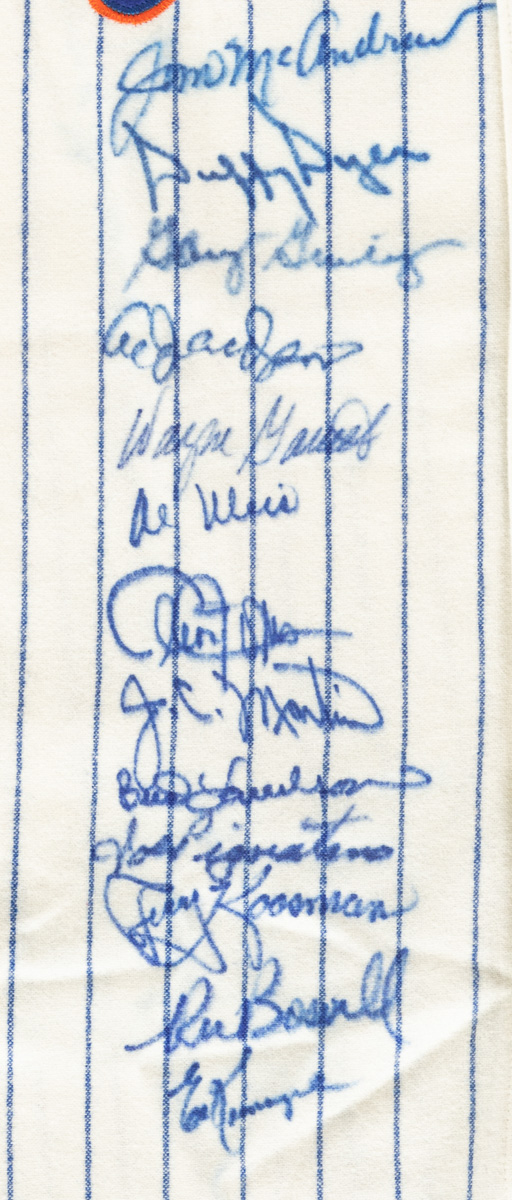 Jim McAndrew
Duffy Dyer
Gary Gentry
Al Jackson
Wayne Garrett
Al Weis
Amos Otis
J.C. Martin
Bud Harrelson
Joe Pignatano
Jerry Koosman
Ken Boswell
Ed Kranepool